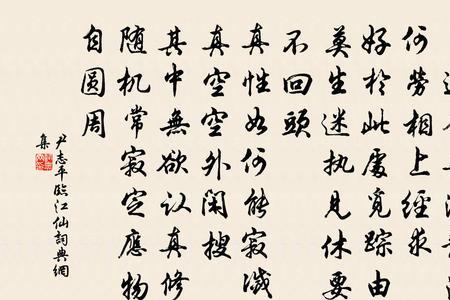 何劳相上經求
好於此處覓踪由
莫生迷执见休要
不回頭
真性如何能寂滅
真空空外闲搜
其中無欲认真修
随机常寂定應物
自圆周
尹志平臨江仙詞典網
集